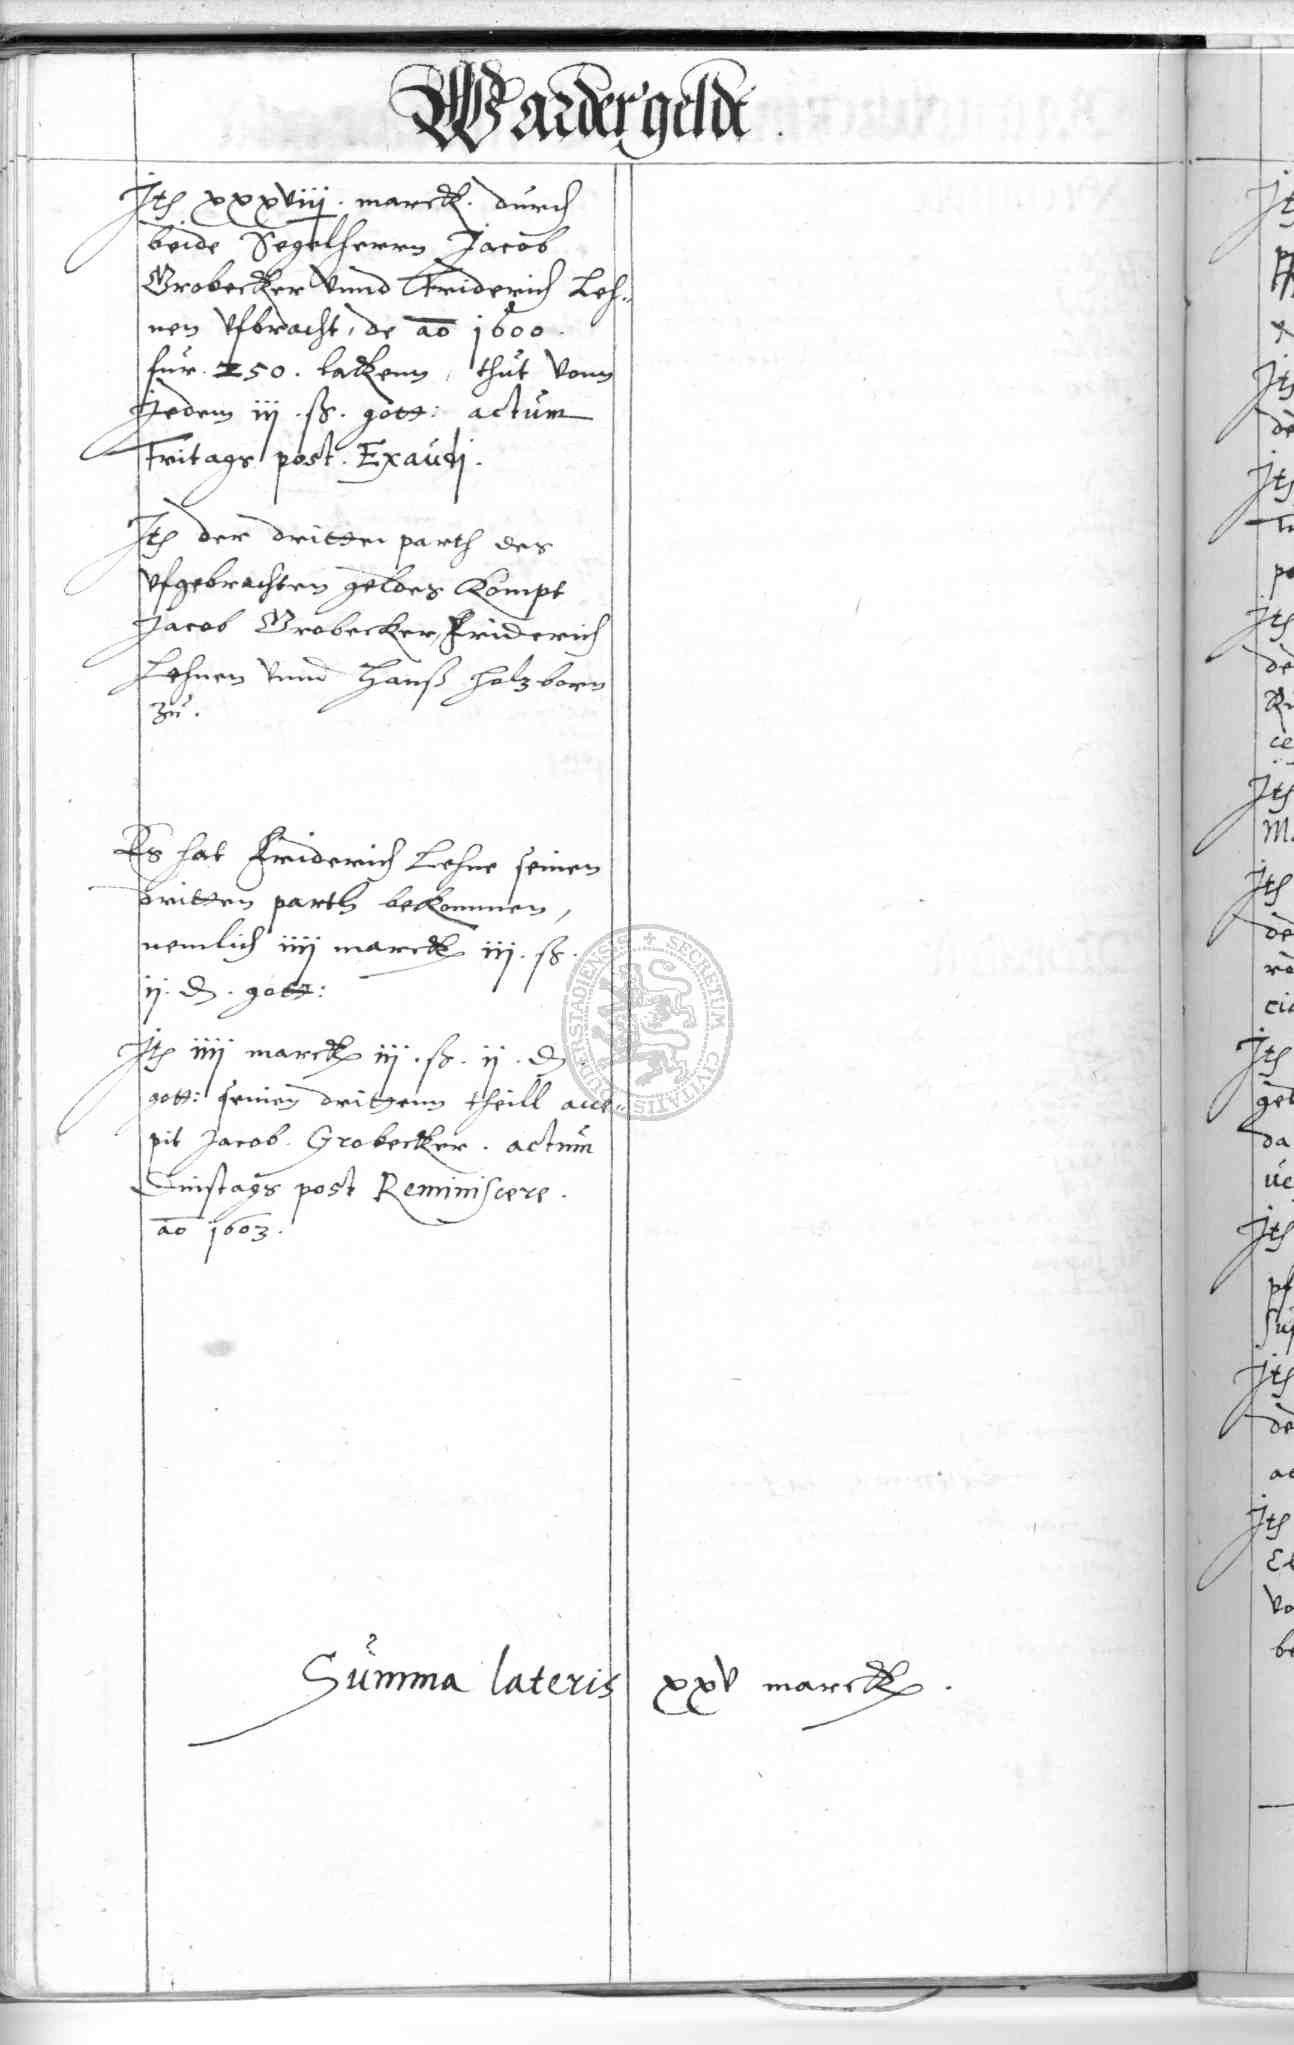 Wardergeldt.
Jtß xxxviij. marck. durch
beide Segelherrn Jacob
Grobecker vnnd Friderich Leh-
nen vfbracht, de ao 1600.
fur. 250. lackenn, thut vonn
Jedem iij. ß. gott: actum
Fritags post. Exaudj.
Jtß der dritten parth des
vfgebrachten geldes kompt
Jacob Grobecker, Friderich
Lehnen vnnd Hanß Holzborn
zu.
Es hat Friderich Lehne seinen
dritten parth bekommen,
nemlich iiij marck iij. ß.
ij. d. gott:
Jtß iiij marck iij. ß. ij. d.
gott: seinen dritzenn theill acce-
pit Jacob. Grobecker. actum
Dinstags post Reminiscere.
ao 1603.
Summa lateris xxv marck.
DUDERSTADIENSIS + SECRETUM CIVITATIS